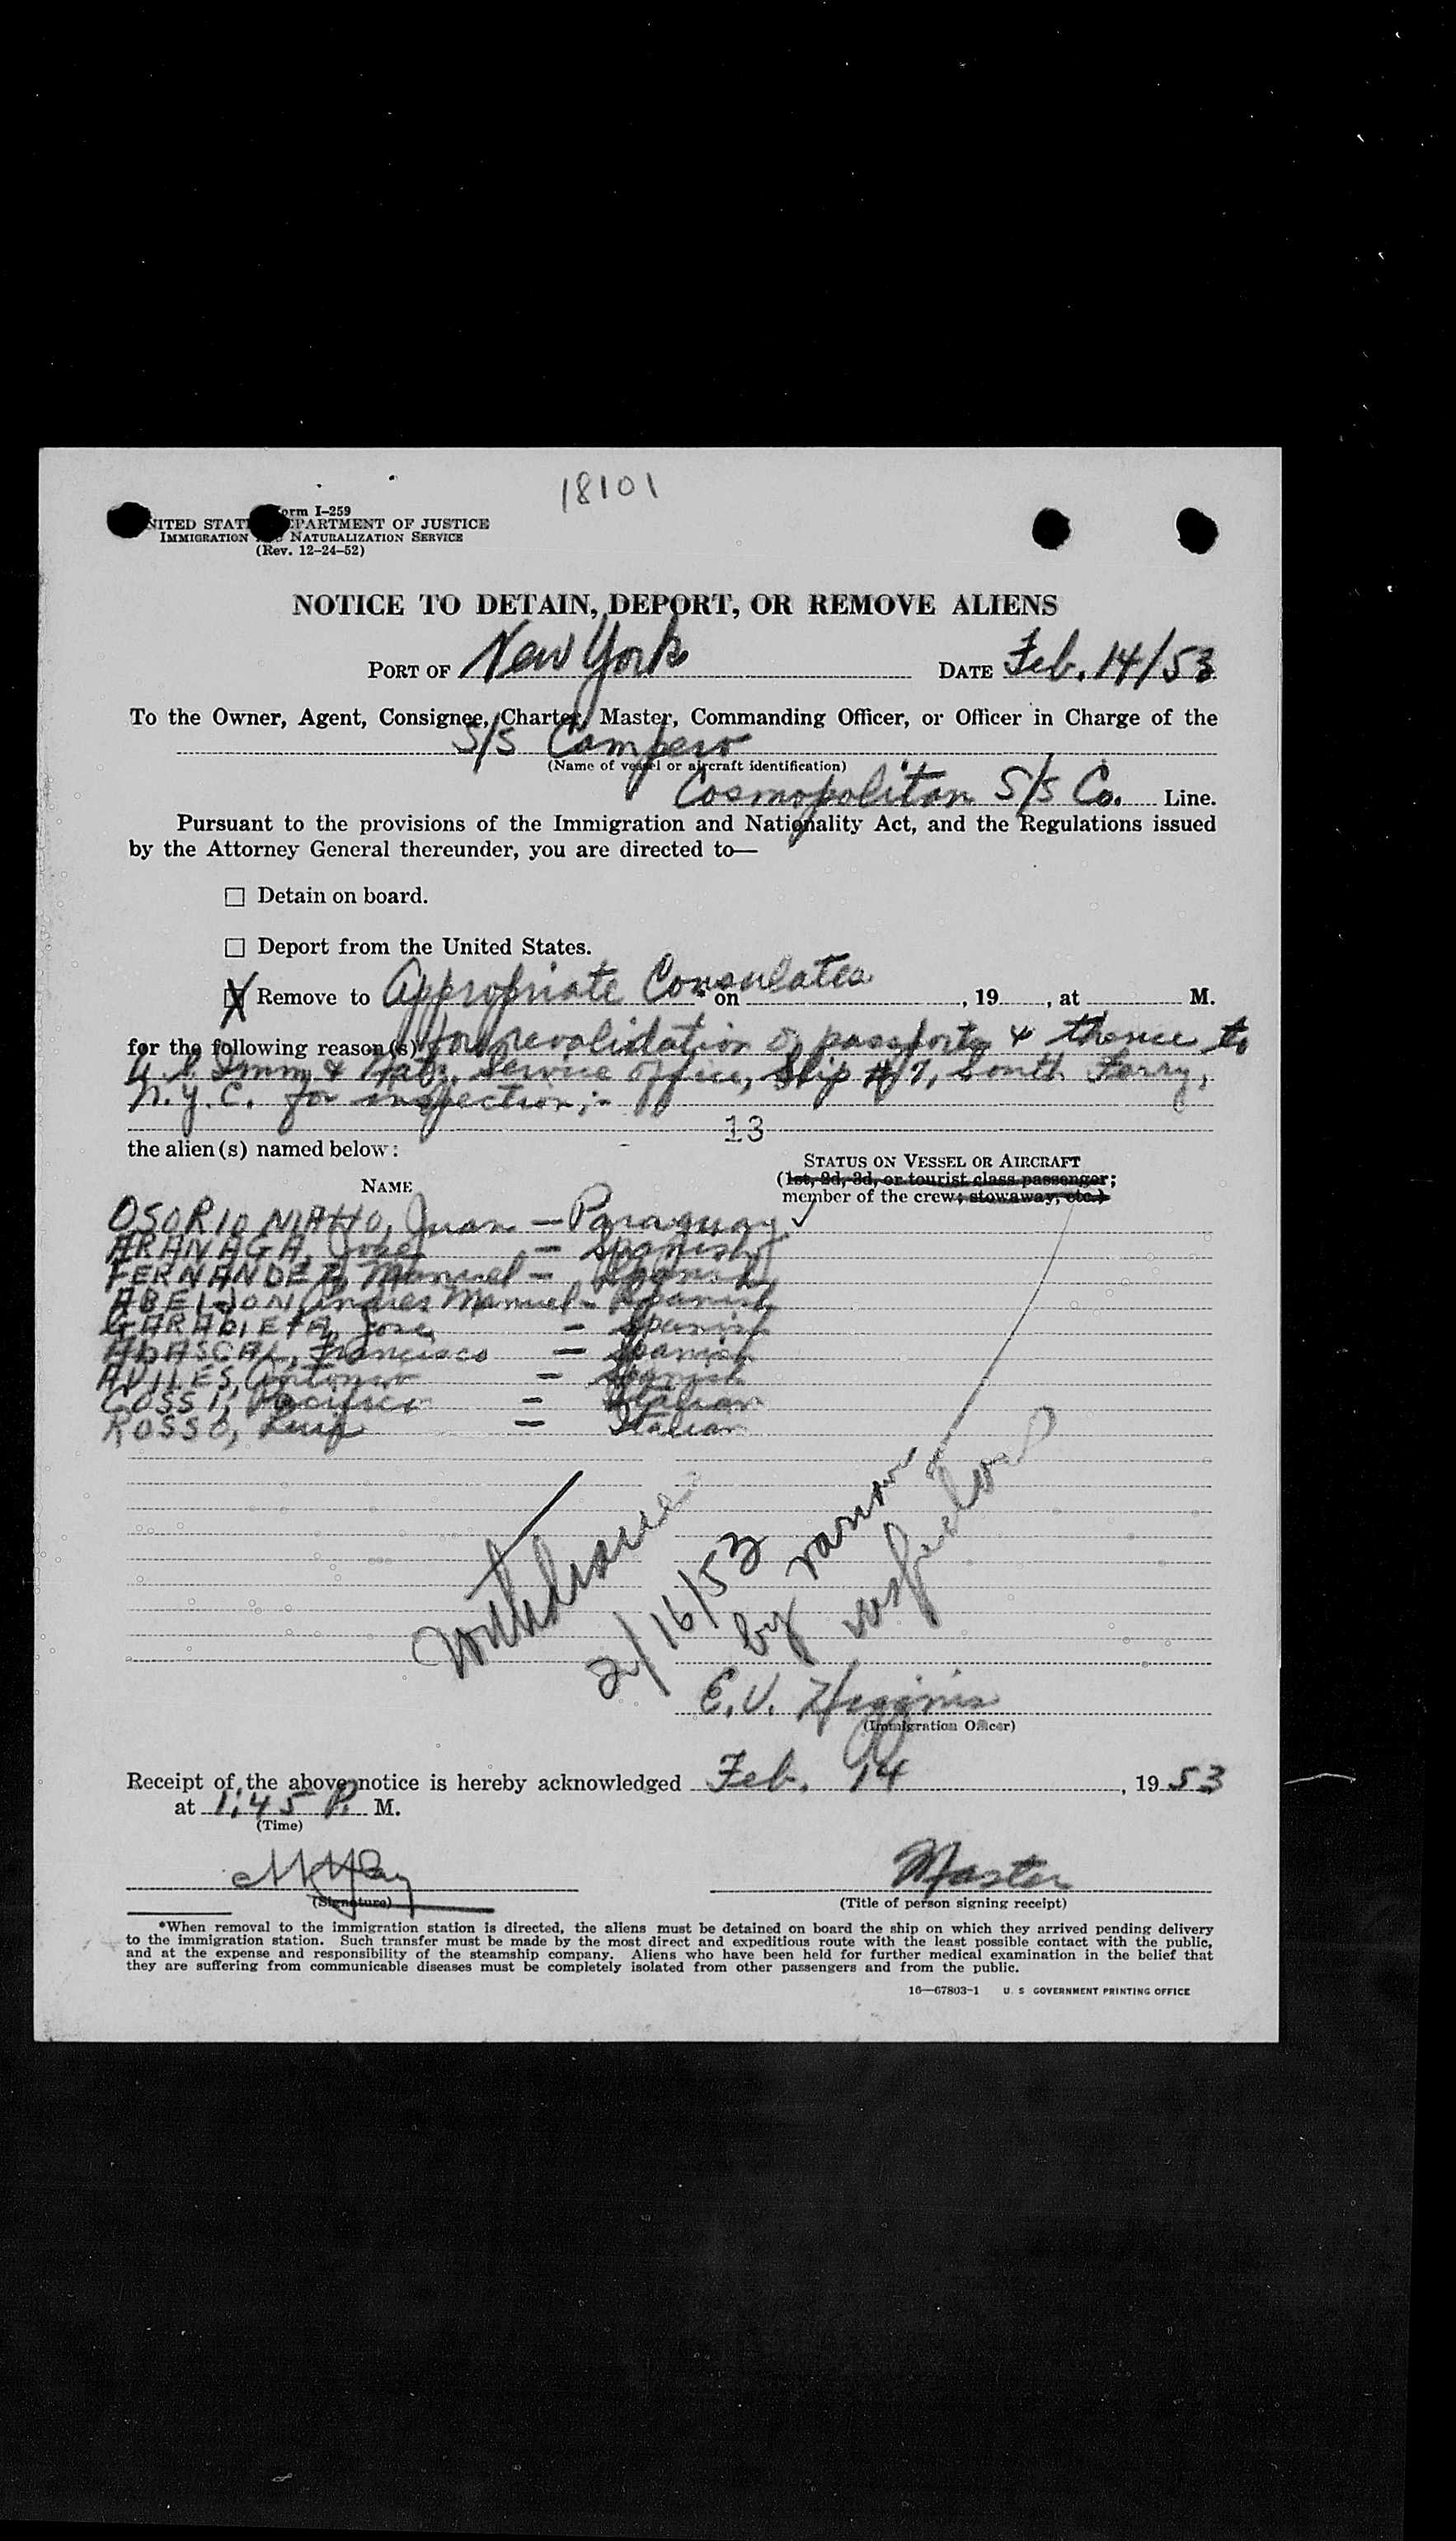 18101
Form I-259
UNITED STATES DEPARTMENT OF JUSTICE
IMMIGRATION AND NATURALIZATION SERVICE
(Rev. 12-24-52)
NOTICE TO DETAIN, DEPORT, OR REMOVE ALIENS
PORT OF New York DATE Feb. 14/53
To the Owner, Agent, Consignee, Charter, Master, Commanding Officer, or Officer in Charge of the
S/S Campero
(Name of vessel or aircraft identification)
Cosmopolitan S/S Co. Line.
Pursuant to the provisions of the Immigration and Nationality Act, and the Regulations issued
by the Attorney General thereunder, you are directed to—
☐ Detain on board.
☐ Deport from the United States.
☒ Remove to Appropriate Consulates * on , 19 , at M.
for the following reason(s) for revalidation of passports & thence to
U.S. Imm. & Natz. Service office, Slip #7, South Ferry,
N.Y.C. for inspection;-
13
the alien(s) named below:
STATUS ON VESSEL OR AIRCRAFT
(1st, 2d, 3d, or tourist class passenger;
NAME
member of the crew; stowaway, etc.)
OSORIO NIATTO, Juan — Paraguay ✓
ARANAGA, Jose — Spanish
FERNANDEZ, Manuel — Spanish
ABEIJON Andres Manuel - Spanish
GARABIETA, Jose — Spanish
ADASCAL, Francisco — Spanish
AVILES, Antonio — Spanish
COSSI, Pacifico — Italian
ROSSO, Luigi — Italian
Withdrawn
2/16/53
by various
E. V. Higgins
(Immigration Officer)
Receipt of the above notice is hereby acknowledged Feb. 14, 1953
at 1:45 P. M.
(Time)
Master
(Signature) (Title of person signing receipt)
*When removal to the immigration station is directed, the aliens must be detained on board the ship on which they arrived pending delivery
to the immigration station. Such transfer must be made by the most direct and expeditious route with the least possible contact with the public,
and at the expense and responsibility of the steamship company. Aliens who have been held for further medical examination in the belief that
they are suffering from communicable diseases must be completely isolated from other passengers and from the public.
16—67803-1 U. S. GOVERNMENT PRINTING OFFICE